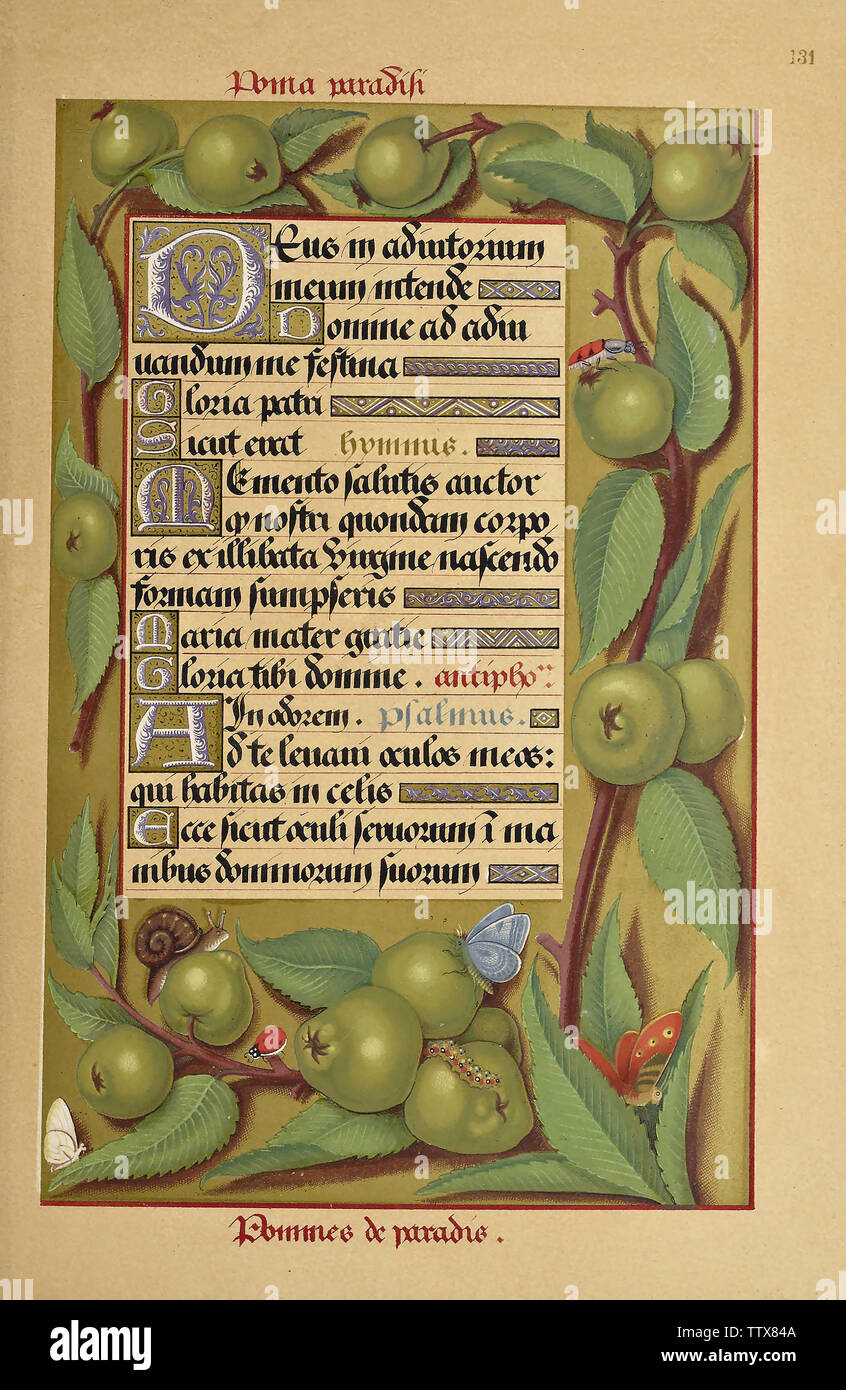 131
Poma paradisi
DEus in adiutorium
meum intende
Domine ad adiu
uandum me festina
Gloria patri
Sicut erat hymnus.
MEmento salutis auctor
qɔ nostri quondam corpo
ris ex illibata Virgine nascendo
formam sumpseris
Maria mater gratie
Gloria tibi domine. antipho.
In odorem. psalmus.
AD te leuaui oculos meos:
qui habitas in celis
Ecce sicut oculi seruorum ī ma
nibus dominorum suorum
Pommes de paradis.
a
alamy
alamy
Image ID: TTX84A
www.alamy.com